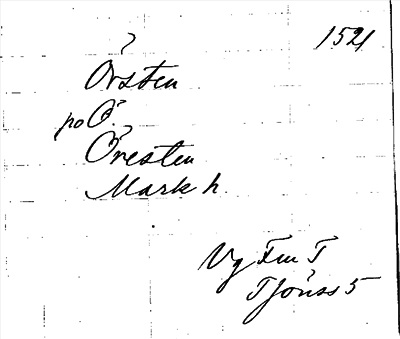 1521
Örsten
på Ö.
Öresten
Mark h.
Vg Fm T
Tjöuss 5